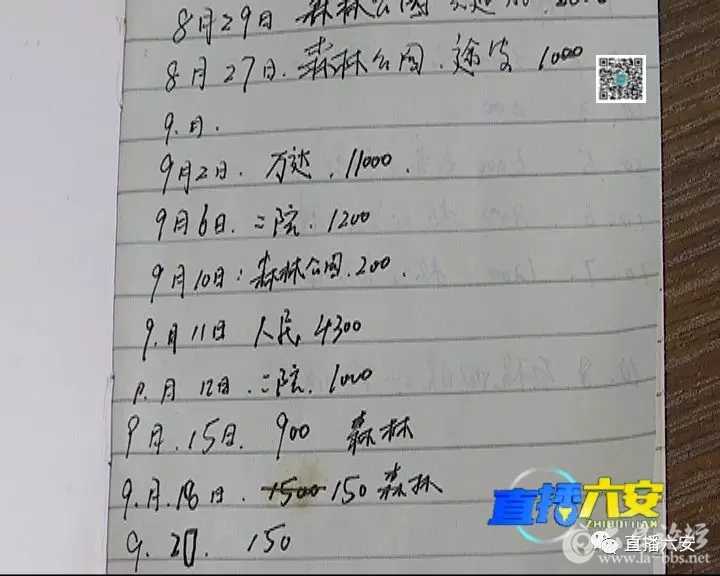 8月29日 森林公园
8月27日.森林公园.途皮 1000
9.月.
9月2日.万达.11000.
9月6日.二院.1200
9月10日:森林公园.200.
9.月11日 人民 4300
9.月12日.二院.1000
9月.15日.900 森林
9.月.18日.1500 150 森林
9.20. 150
直播六安
ZHIBOLIUAN
直播六安
www.la-bbs.net